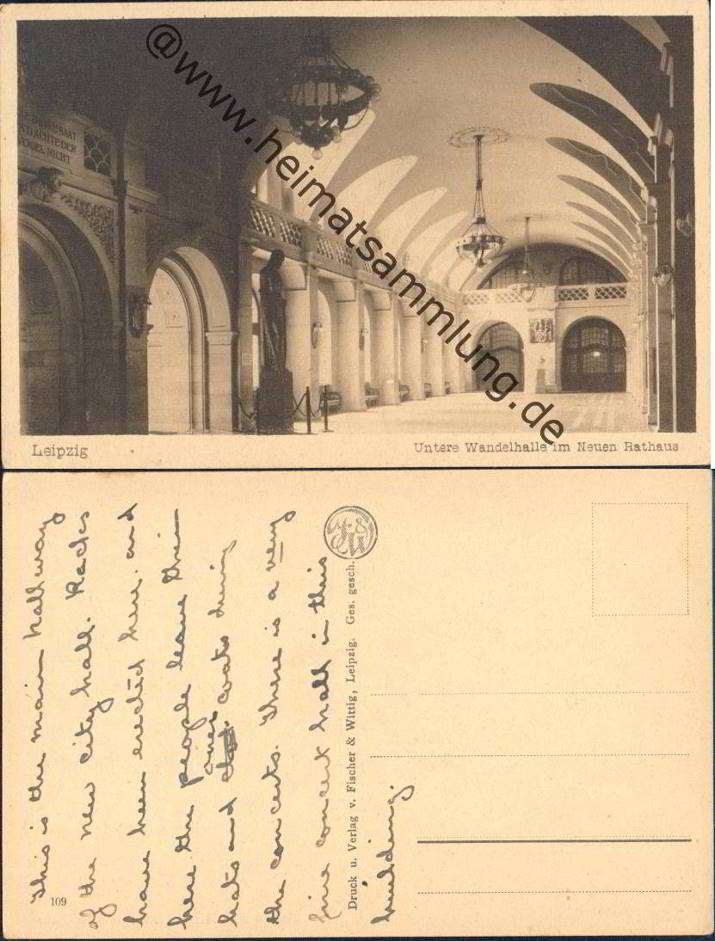 SAAT
DACHTE DER
VOGEL NICHT
@www.heimatsammlung.de
Leipzig
Untere Wandelhalle im Neuen Rathaus
This is the main hallway
of the new city hall. Racks
have been erected here and
here the people leave their
hats and over coats during
the concerts. There is a very
fine concert hall in this
building.
109
Druck u. Verlag v. Fischer & Wittig, Leipzig. Ges. gesch.